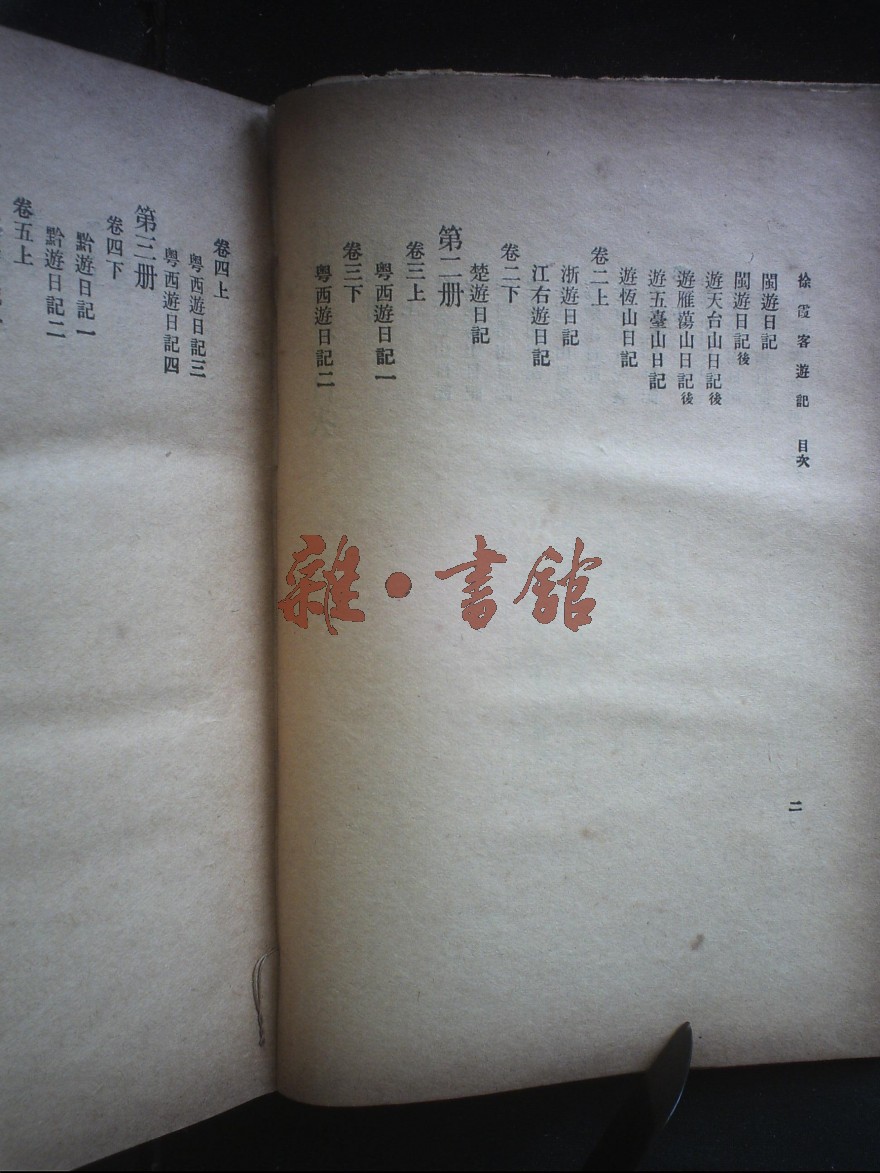 徐霞客遊記 目次
二
閩遊日記
閩遊日記後
遊天台山日記後
遊雁蕩山日記後
遊五臺山日記
遊恆山日記
卷二上
浙遊日記
江右遊日記
卷二下
楚遊日記
第二册
卷三上
粵西遊日記一
卷三下
粵西遊日記二
卷四上
粵西遊日記三
粵西遊日記四
第三册
卷四下
黔遊日記一
黔遊日記二
卷五上
雜·書館